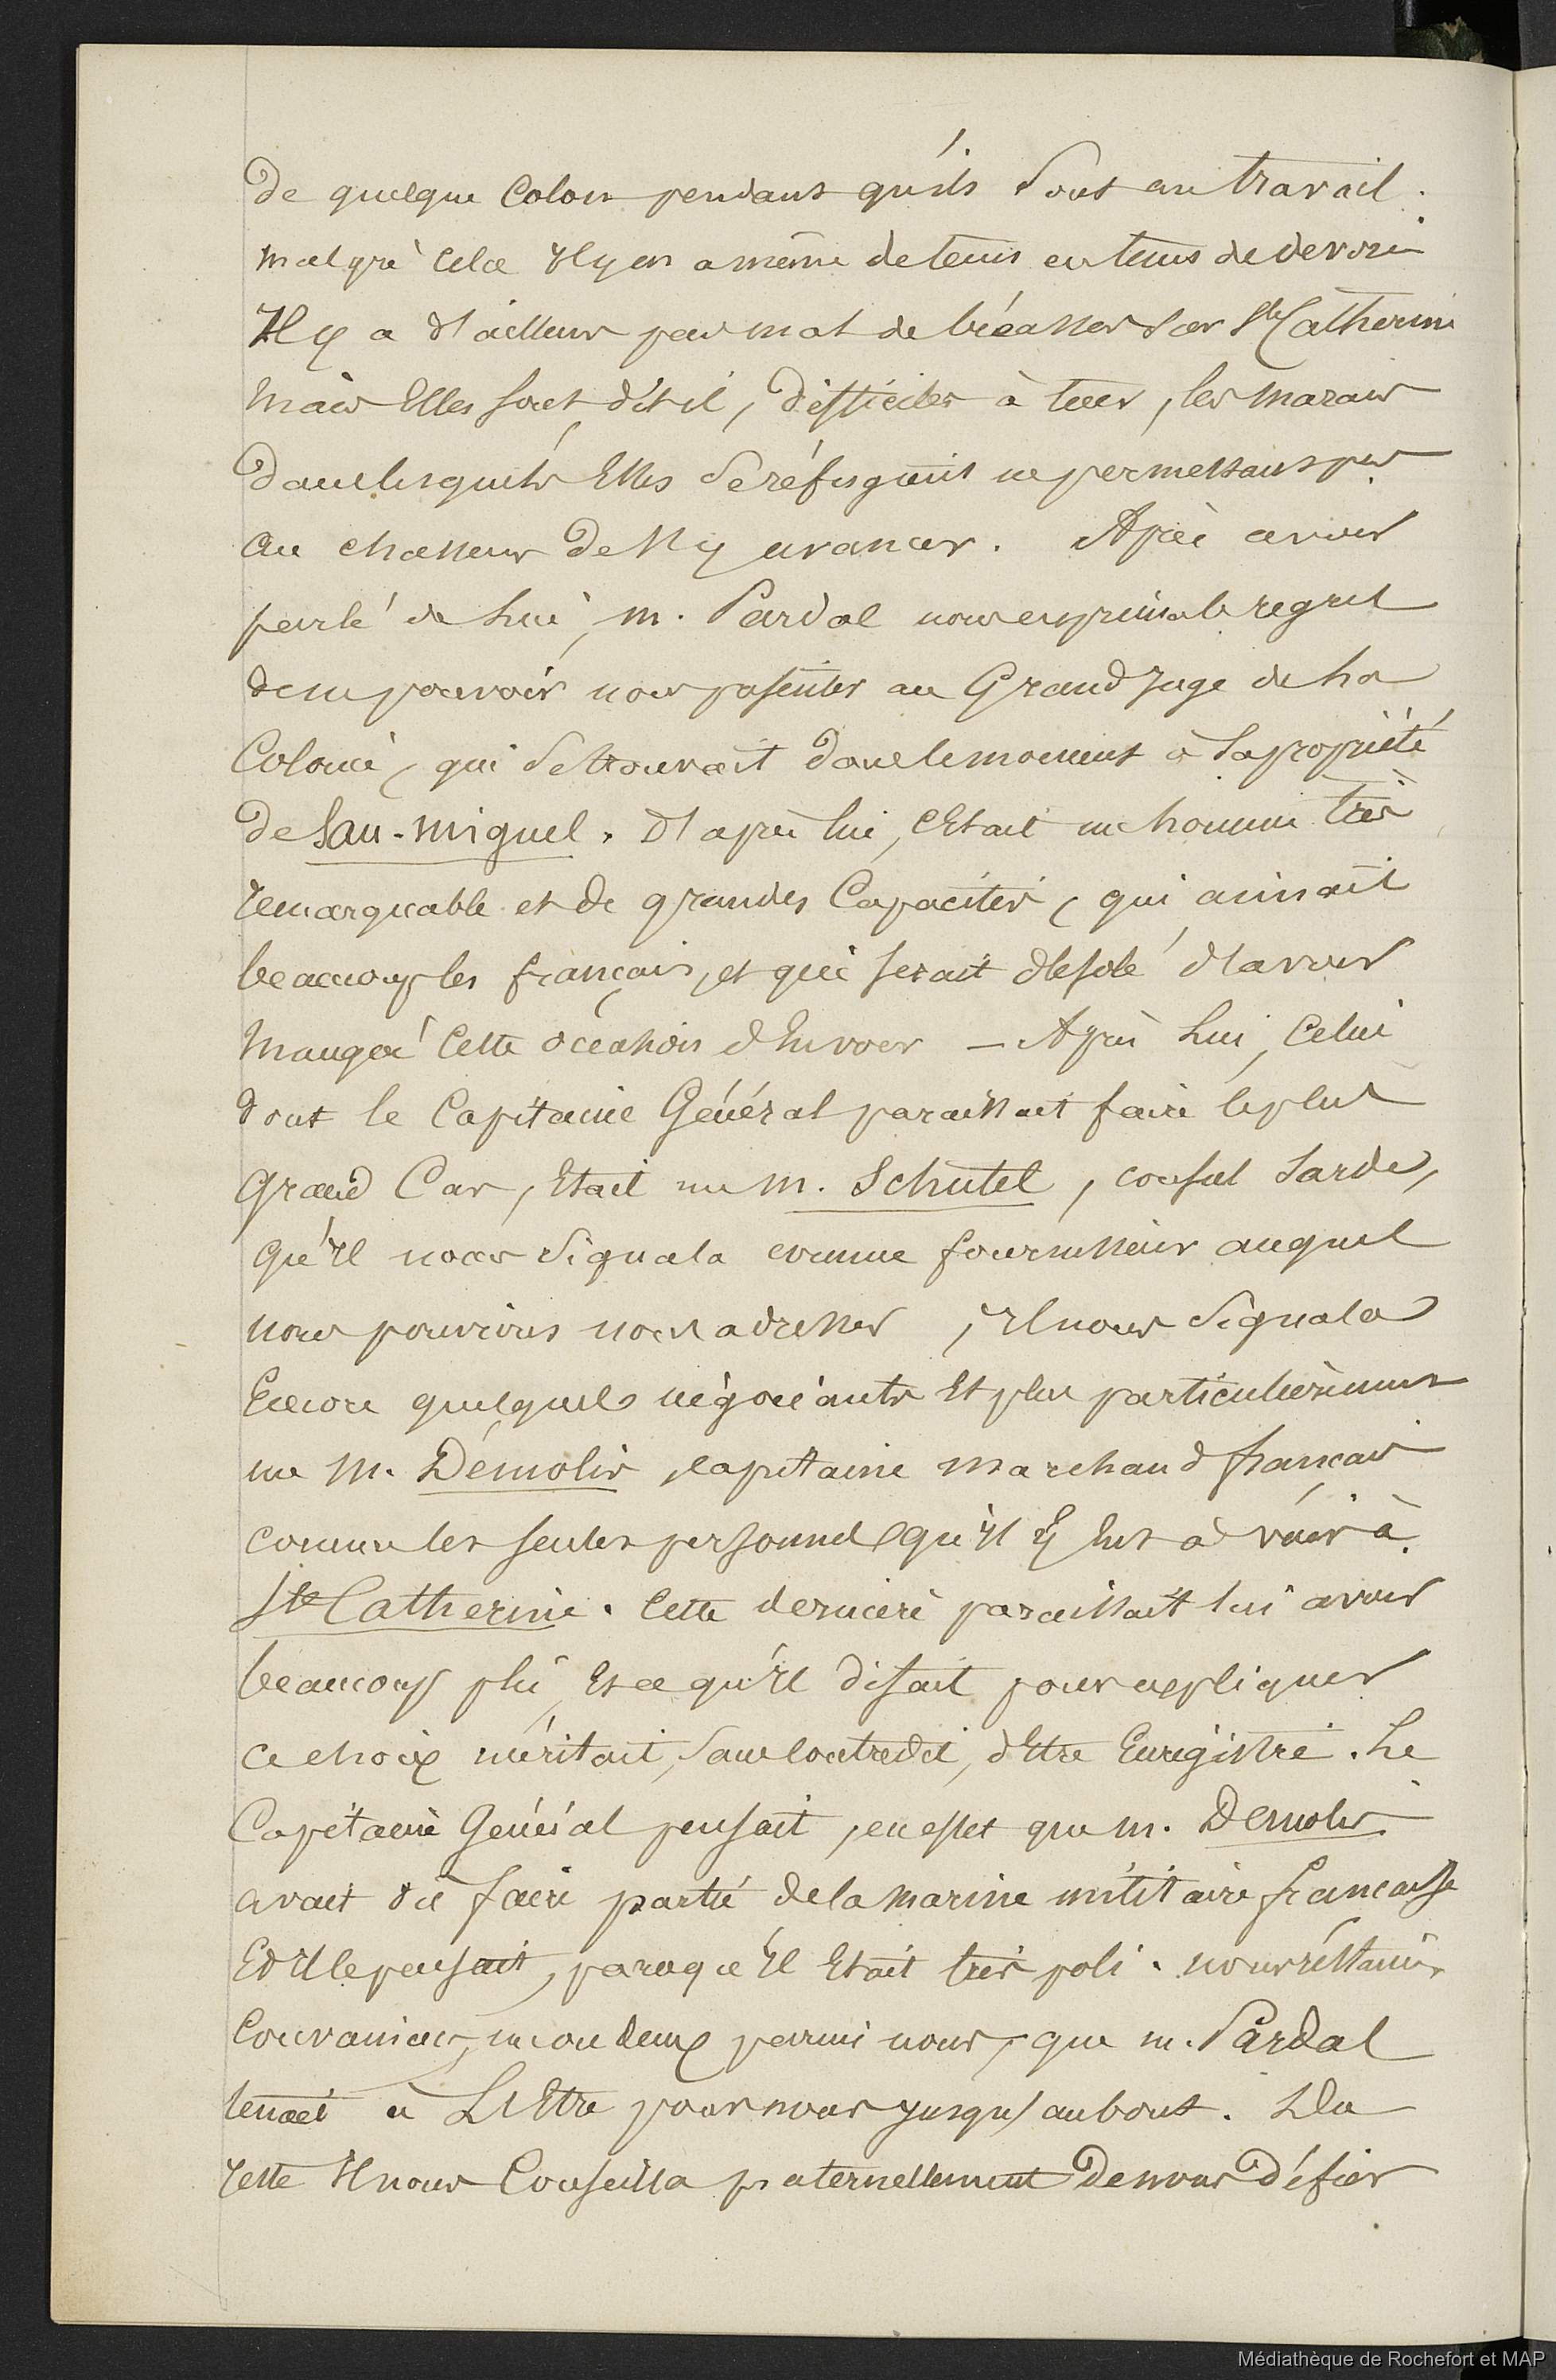 de quelque Colon pendant qu'ils sont au travail.
malgré cela Il y en a même de tems en tems de dévoré
Il y a d'ailleurs pas mal de bécasses sur Ste Catherine
mais Elles sont, dit il, difficiles à tuer, les marais
dans lesquels Elles se réfugient ne permettant pas
au chasseur de s'y avancer. Après avoir
parlé de lui, M. Pardal nous exprima le regret
de ne pouvoir nous présenter au Grand Juge de la
Colonie, qui se trouvait dans le moment à sa propriété
de San-Miguel. D'après lui, c'Etait un homme très
remarquable et de grandes Capacités, qui aimait
beaucoup les français, et qui serait désolé d'avoir
manqué cette océahion d'En voir — Après lui, Celui
dont le Capitaine Général paraissait faire le plus
grand Cas, Etait un M. Schutel, consul Sarde,
qu'Il nous signala comme fournisseur auquel
nous pourrions nous adresser, Il nous signala
Encore quelques négociants Et plus particulièrement
un M. Démolis, capitaine marchand français
comme les seules personnes qu'Il y Eut à voir à
Ste Catherine. Cette dernière paraissait lui avoir
beaucoup plu, Et ce qu'Il disait pour expliquer
ce choix méritait, sans contredit, d'Etre Enrégistré. Le
Capitaine Général pensait, en effet que M. Démolis
avait dû faire partie de la marine militaire française
Et Il le pensait, parcequ'Il Etait très poli. nous restâmes
Convaincus, un ou deux parmi nous, que M. Pardal
tenait à L'Etre pour nous jusqu'au bout. Du
reste Il nous Conseilla paternellement de nous défier
Médiathèque de Rochefort et MAP